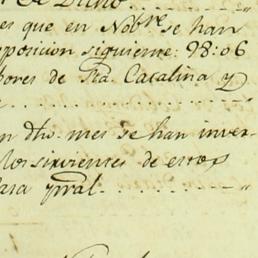 es que en Nob.re se han
posicion siguiente: 98:06
ores de Sta. Catalina y
n dho. mes se han inver-
los sirvientes de estos
ara